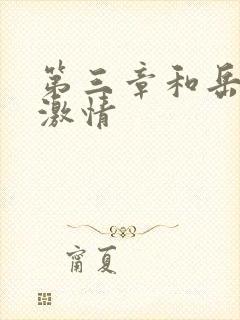 第三章和岳
激情
甯夏